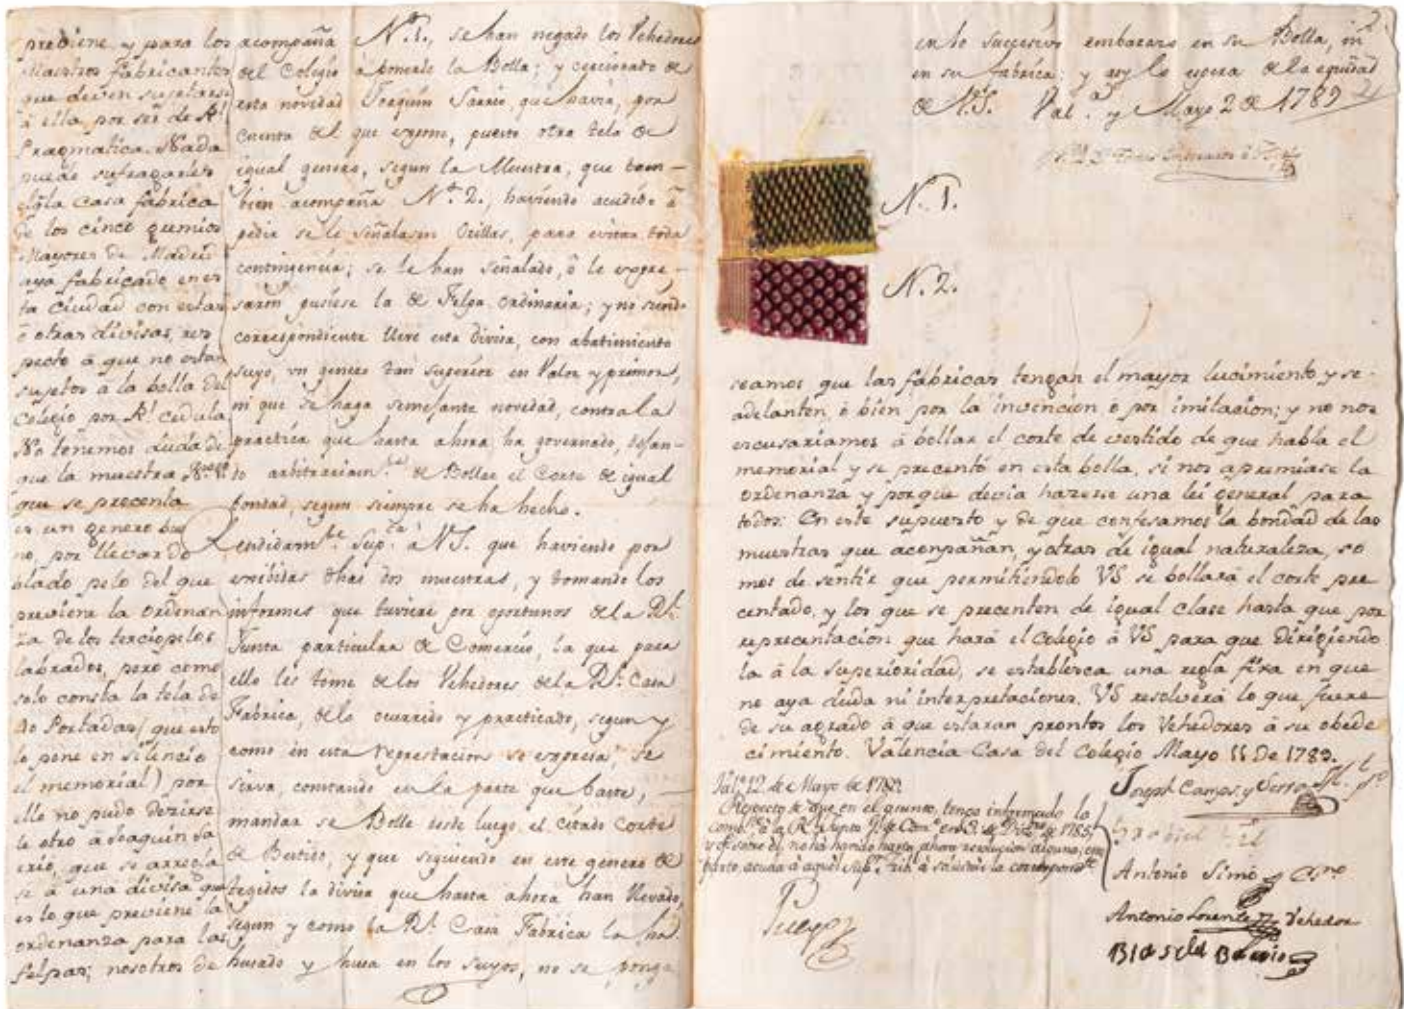 previene y para los
Maestros Fabricantes
que deven sujetarse
á ella por ser de Rl
Pragmatica. Nada
puede sufragarles
el q̃ la Casa fabrica
de los cinco gremios
Mayores de Madrid
aya fabricado en es
ta Ciudad con estas
ó otras divisas, res
pecto á que no estan
sujetos á la bolla del
Colegio por Rl. cedula
No tenemos duda de
que la muestra
que se precenta
es un genero bue
no, por llevar do
blado pelo del que
previene la ordenan
za de los terciopelos
labrados, pero como
solo consta la tela de
40 Portadas (que esto
lo pone en silencio
el memorial) por
ello no pudo dezirse
le otro á Joaquin Sa
rrió, que se arregla
se á una divisa que
es lo que previene la
ordenanza para las
felpas; nosotros de
acompaña Nº. 1., se han negado los Vehedores
del Colegio á ponerle la Bolla; y cercionado de
esta novedad Joaquin Sarrió, que havia, por
Cuenta del que expone, puesto otra tela de
igual genero, segun la Muestra, que tam-
bien acompaña Nº. 2., haviendo acudido á
pedir se le señalasen Orillas, para evitar toda
contingencia; se le han señalado, ó le expre-
saron pusiese la de Felpa ordinaria; y no siendo
correspondiente lleve esta divisa, con abatimiento
suyo, un genero tan superior en Valor y primor,
ni que se haga semejante novedad, contra la
practica que hasta ahora ha governado,
to arbitrariam.te de Bollar el Corte de igual
bondad, segun siempre se ha hecho.
Rendidam.te Sup.ca á VS. que haviendo por
exibidas dhas dos muestras, y tomando los
informes que tuviere por oportunos de la Rl.
Junta particular de Comercio, la que para
ello les tome de los Vehedores de la Rl. Casa
Fabrica, de lo ocurrido y practicado, segun y
como en esta representacion se expresa, se
sirva, constando en la parte que baste,
mandar se Bolle desde luego, el citado Corte
de Bestido, y que siguiendo en este genero de
tegidos la divisa que hasta ahora han llevado,
segun y como la Rl. Casa Fabrica lo ha
husado y husa en los suyos, no se ponga
2
en lo succesivo embarazo en su Bolla, ni
en su fabrica; y asy lo espera de la equidad
de V.S. Val.a y Mayo 2 de 1789
N. 1.
N. 2.
seamos que las fabricas tengan el mayor lucimiento y se
adelanten, ó bien por la invencion ó por imitacion; y no nos
escusariamos á bollar el corte de vestido de que habla el
memorial y se precentó en esta bolla, si nos apremiase la
ordenanza y porque devia hazerse una lei general para
todos. En este supuesto y de que confesamos la bondad de las
muestras que acompañan, y otras de igual naturaleza, so
mos de sentir que permitiendolo VS se bollará el corte pre
centado, y los que se precenten de igual clase hasta que por
representacion que hará el colegio á VS para que dirigiendo
la á la superioridad, se establesca una regla fixa en que
no aya duda ni interpretaciones. VS resolverá lo que fuere
de su agrado á que estaran prontos los Vehedores á su obede
cimiento. Valencia Casa del Colegio Mayo 11 De 1789.
Val.a 12 de Mayo de 1789
Respecto de que en el asunto, tengo informado lo
comb.te á la Rl. Junta Gl. de Com.o en de Dic.re de 1785
y de sobre el, no ha havido hasta ahora resolucion alguna;
parte, acuda á aquel Sup.r Trib.l á solicitar la correspond.te
Puego
Joseph Campos y Serra
Gabriel Gil
Antonio Simó
Antonio Lorente Vehedor
Blas